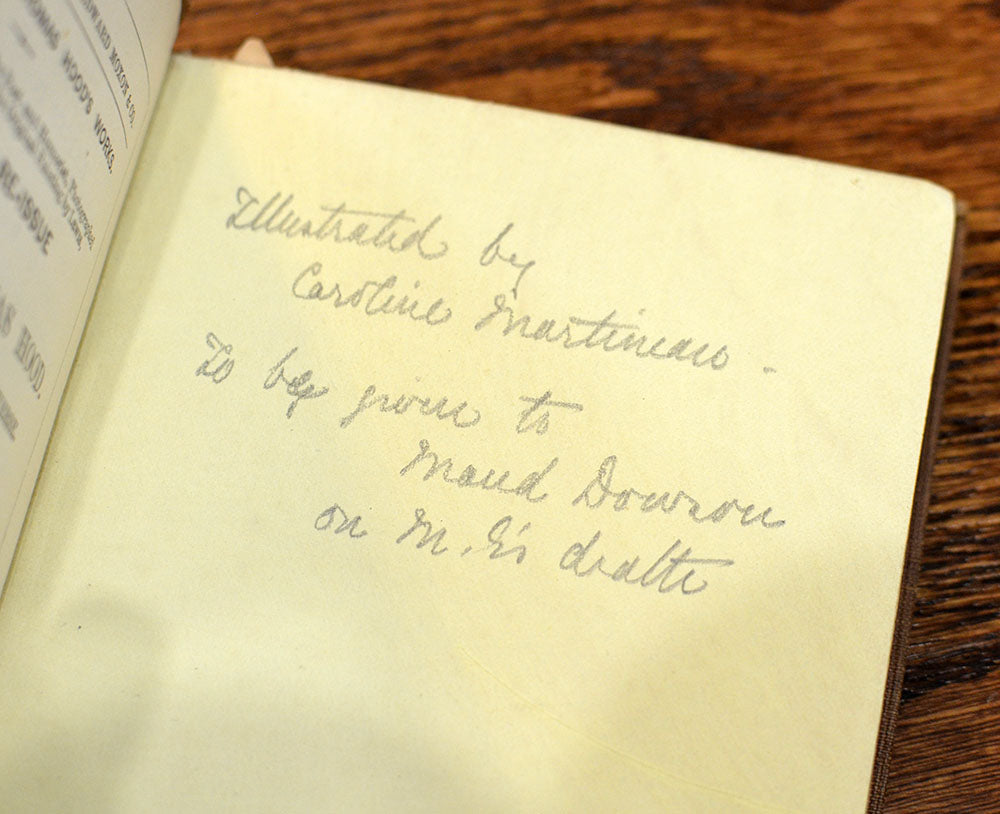 EDWARD MOXON & CO.
THOMAS HOOD'S WORKS.
RE-ISSUE
HOOD.
Illustrated by
Caroline Martineau -
To be given to
Maud Dowson
on M. G's death